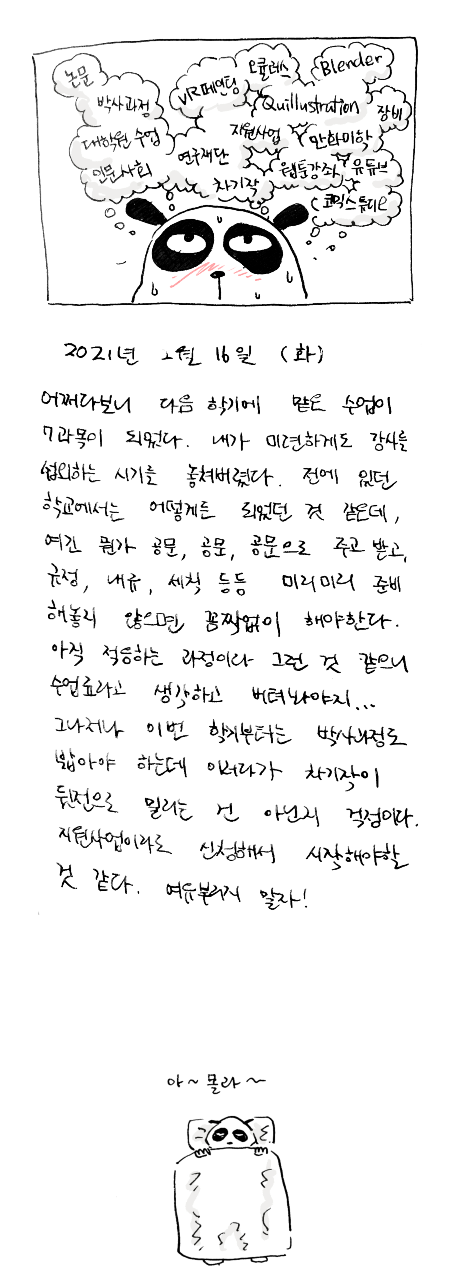 논문
박사과정
VR페인팅
오큘러스
Blender
Quillustration
장비
대학원 수업
지원사업
만화미학
인문사회
연구재단
웹툰강좌
유튜브
차기작
코믹스튜디오
2021년 2월 16일 (화)
어쩌다보니 다음 학기에 맡은 수업이
7과목이 되었다. 내가 미련하게도 강사를
섭외하는 시기를 놓쳐버렸다. 전에 있던
학교에서는 어떻게든 되었던 것 같은데,
여긴 뭔가 공문, 공문, 공문으로 주고 받고,
규정, 내규, 세칙 등등 미리미리 준비
해놓지 않으면 꼼짝없이 해야한다.
아직 적응하는 과정이라 그런 것 같으니
수업료라고 생각하고 버텨봐야지...
그나저나 이번 학기부터는 박사과정도
밟아야 하는데 이러다가 차기작이
뒷전으로 밀리는 건 아닌지 걱정이다.
지원사업이라도 신청해서 시작해야할
것 같다. 여유부리지 말자!
아~ 몰라~